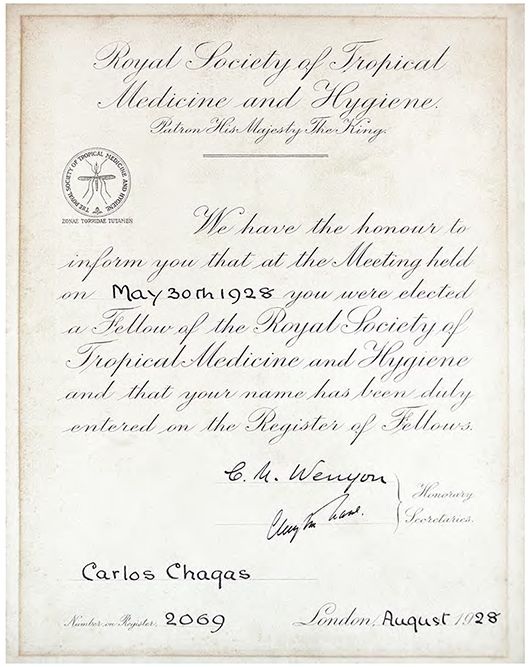 Royal Society of Tropical
Medicine and Hygiene.
Patron His Majesty The King.
THE ROYAL SOCIETY OF TROPICAL MEDICINE AND HYGIENE
ZONAE TORRIDAE TUTAMEN
We have the honour to
inform you that at the Meeting held
on May 30th 1928 you were elected
a Fellow of the Royal Society of
Tropical Medicine and Hygiene
and that your name has been duly
entered on the Register of Fellows.
C. M. Wenyon
Clayton Lane.
Honorary
Secretaries.
Carlos Chagas
Number on Register. 2069
London, August 1928